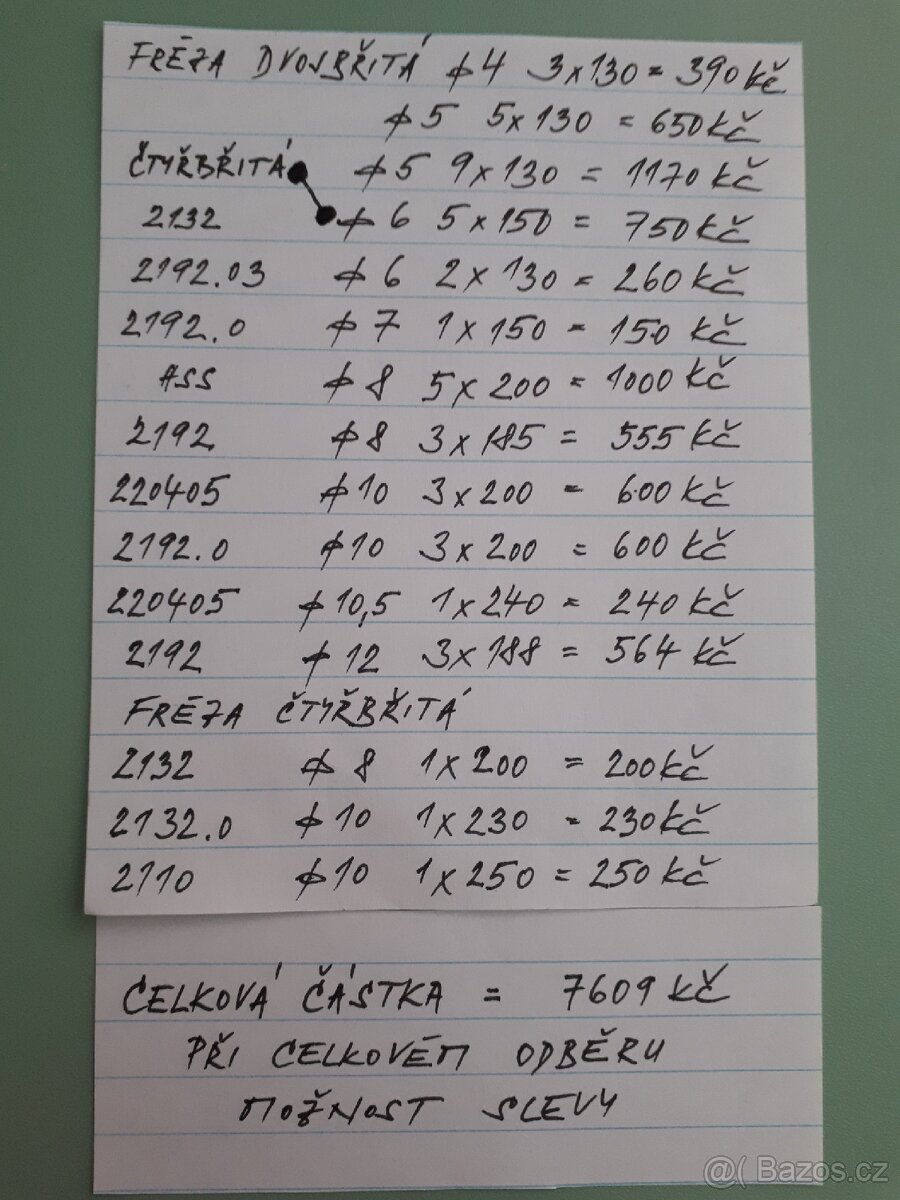 FRÉZA DVOJBŘITÁ ϕ4 3x130 = 390 kč
ϕ5 5x130 = 650 kč
ČTYŘBŘITÁ ϕ5 9x130 = 1170 kč
2132 ϕ6 5x150 = 750 kč
2192.03 ϕ6 2x130 = 260 kč
2192.0 ϕ7 1x150 = 150 kč
ASS ϕ8 5x200 = 1000 kč
2192 ϕ8 3x185 = 555 kč
220405 ϕ10 3x200 = 600 kč
2192.0 ϕ10 3x200 = 600 kč
220405 ϕ10,5 1x240 = 240 kč
2192 ϕ12 3x188 = 564 kč
FRÉZA ČTYŘBŘITÁ
2132 ϕ8 1x200 = 200 kč
2132.0 ϕ10 1x230 = 230 kč
2110 ϕ10 1x250 = 250 kč
CELKOVÁ ČÁSTKA = 7609 kč
PŘI CELKOVÉM ODBĚRU
MOŽNOST SLEVY
@( Bazos.cz